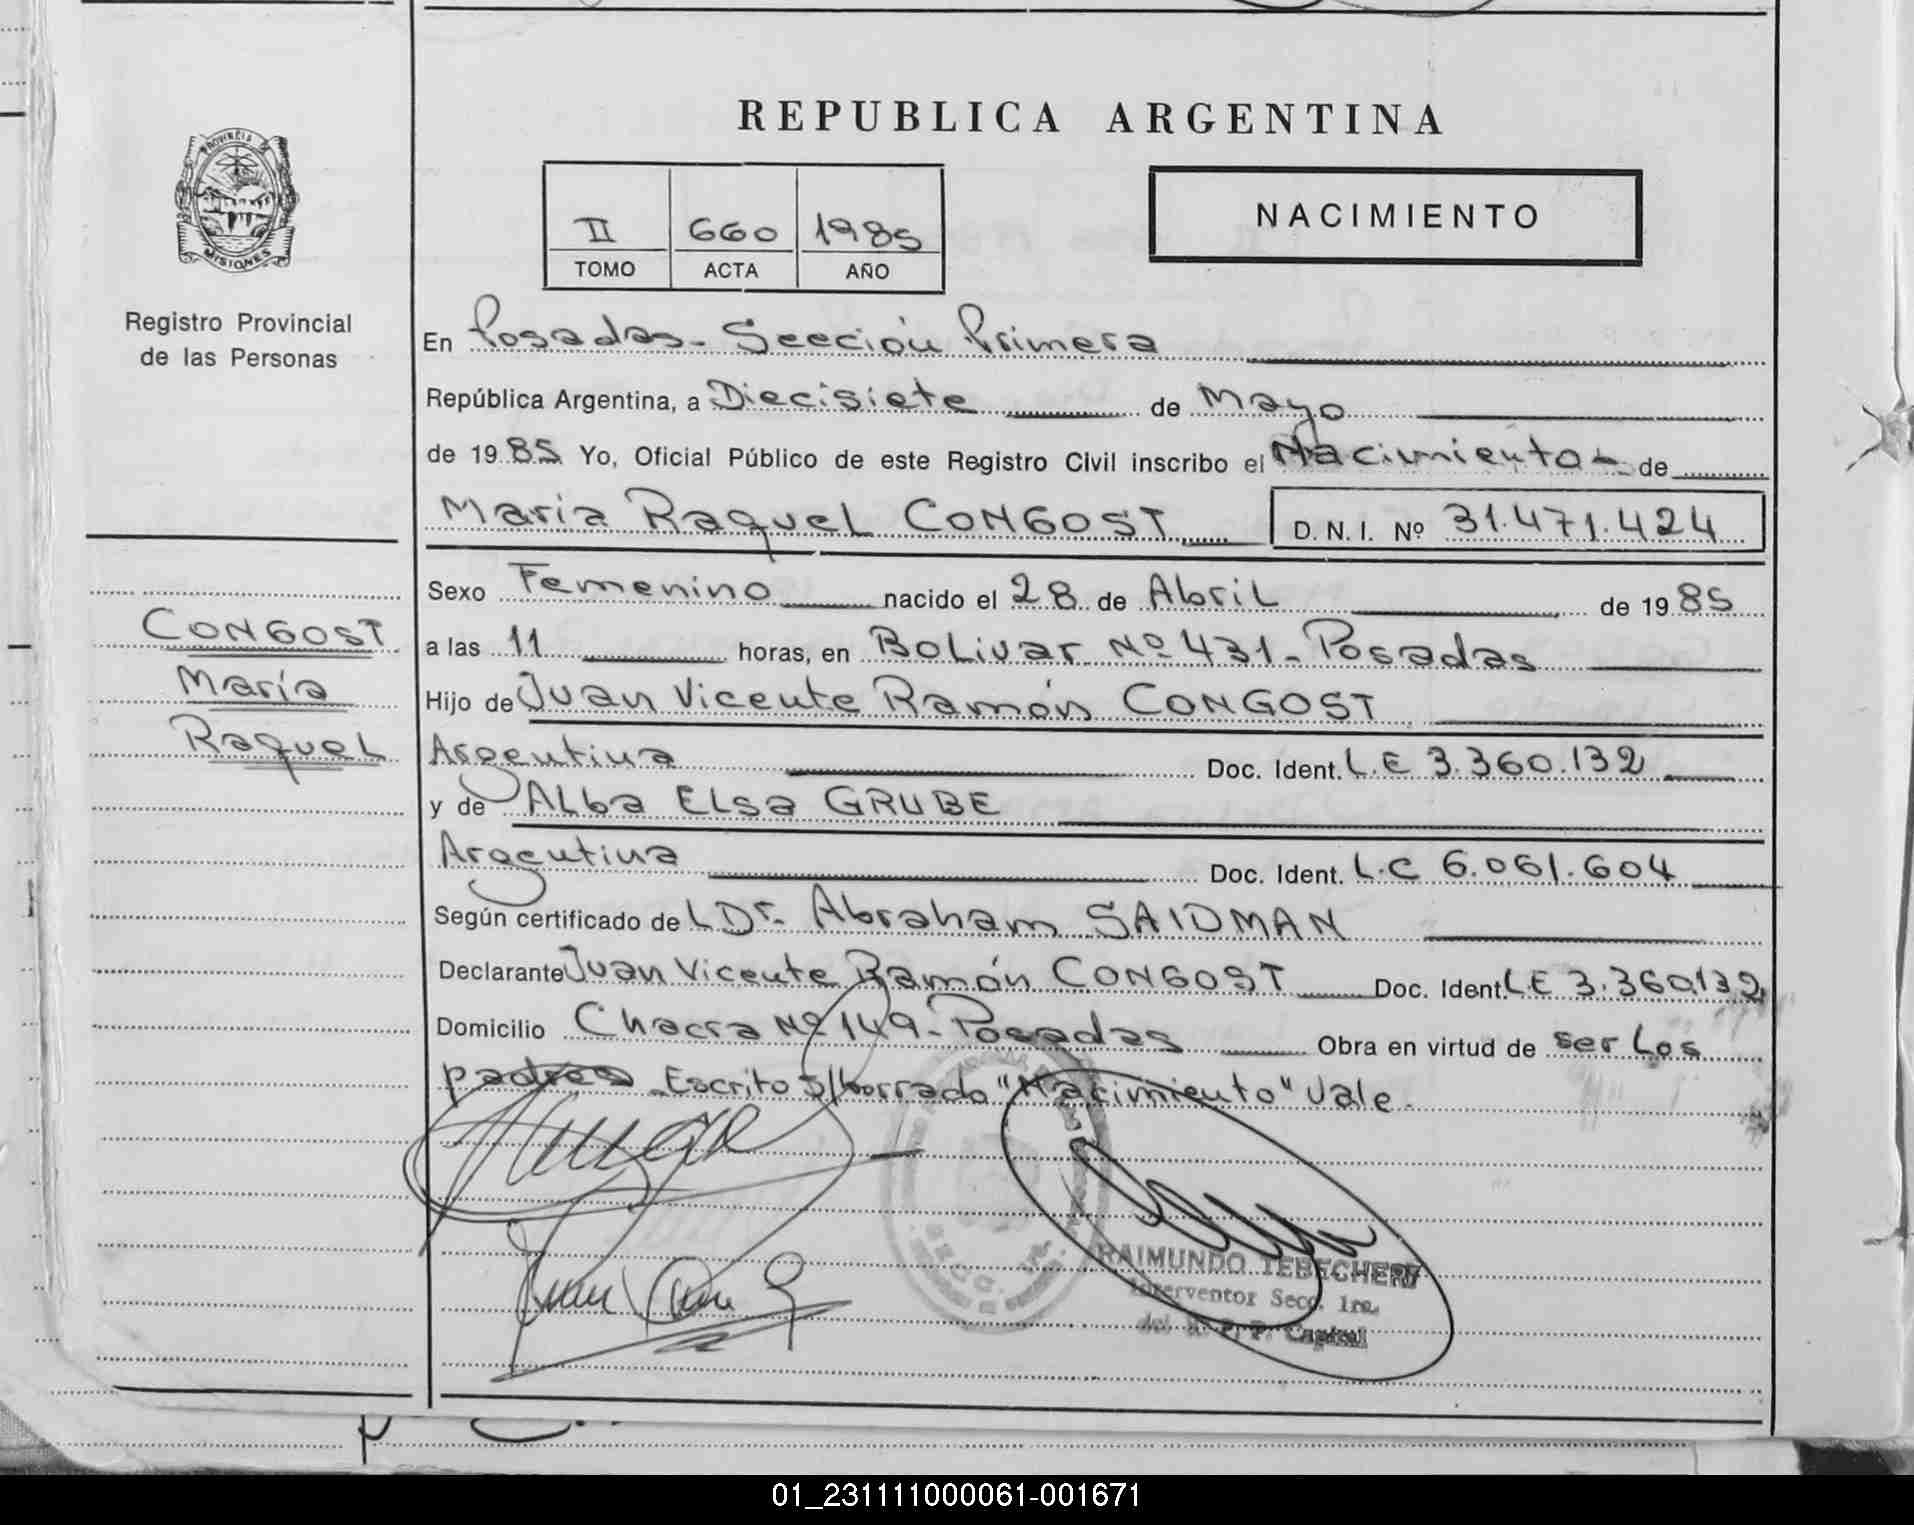 REPUBLICA ARGENTINA
PROVINCIA
MISIONES
Registro Provincial
de las Personas
II 660 1985
TOMO ACTA AÑO
NACIMIENTO
En Posadas - Sección Primera
República Argentina, a Diecisiete de Mayo
de 19 85 Yo, Oficial Público de este Registro Civil inscribo el Nacimiento - de
María Raquel CONGOST D. N. I. Nº 31.471.424
Sexo Femenino nacido el 28 de Abril de 19 85
a las 11 horas, en Bolivar Nº 431 - Posadas
Hijo de Juan Vicente Ramón CONGOST
Argentina Doc. Ident. L.E 3.360.132
y de Alba Elsa GRUBE
Argentina Doc. Ident. L.C 6.061.604
Según certificado de L Dr. Abraham SAIDMAN
Declarante Juan Vicente Ramón CONGOST Doc. Ident. LE 3.360.132
Domicilio Chacra Nº 149 - Posadas Obra en virtud de ser los
padres - Escrito s/borrado "Nacimiento" Vale.
CONGOST
María
Raquel
RAIMUNDO TEBECHERI
Interventor Secc. 1ra.
del R. P. P. Capital
01_231111000061-001671